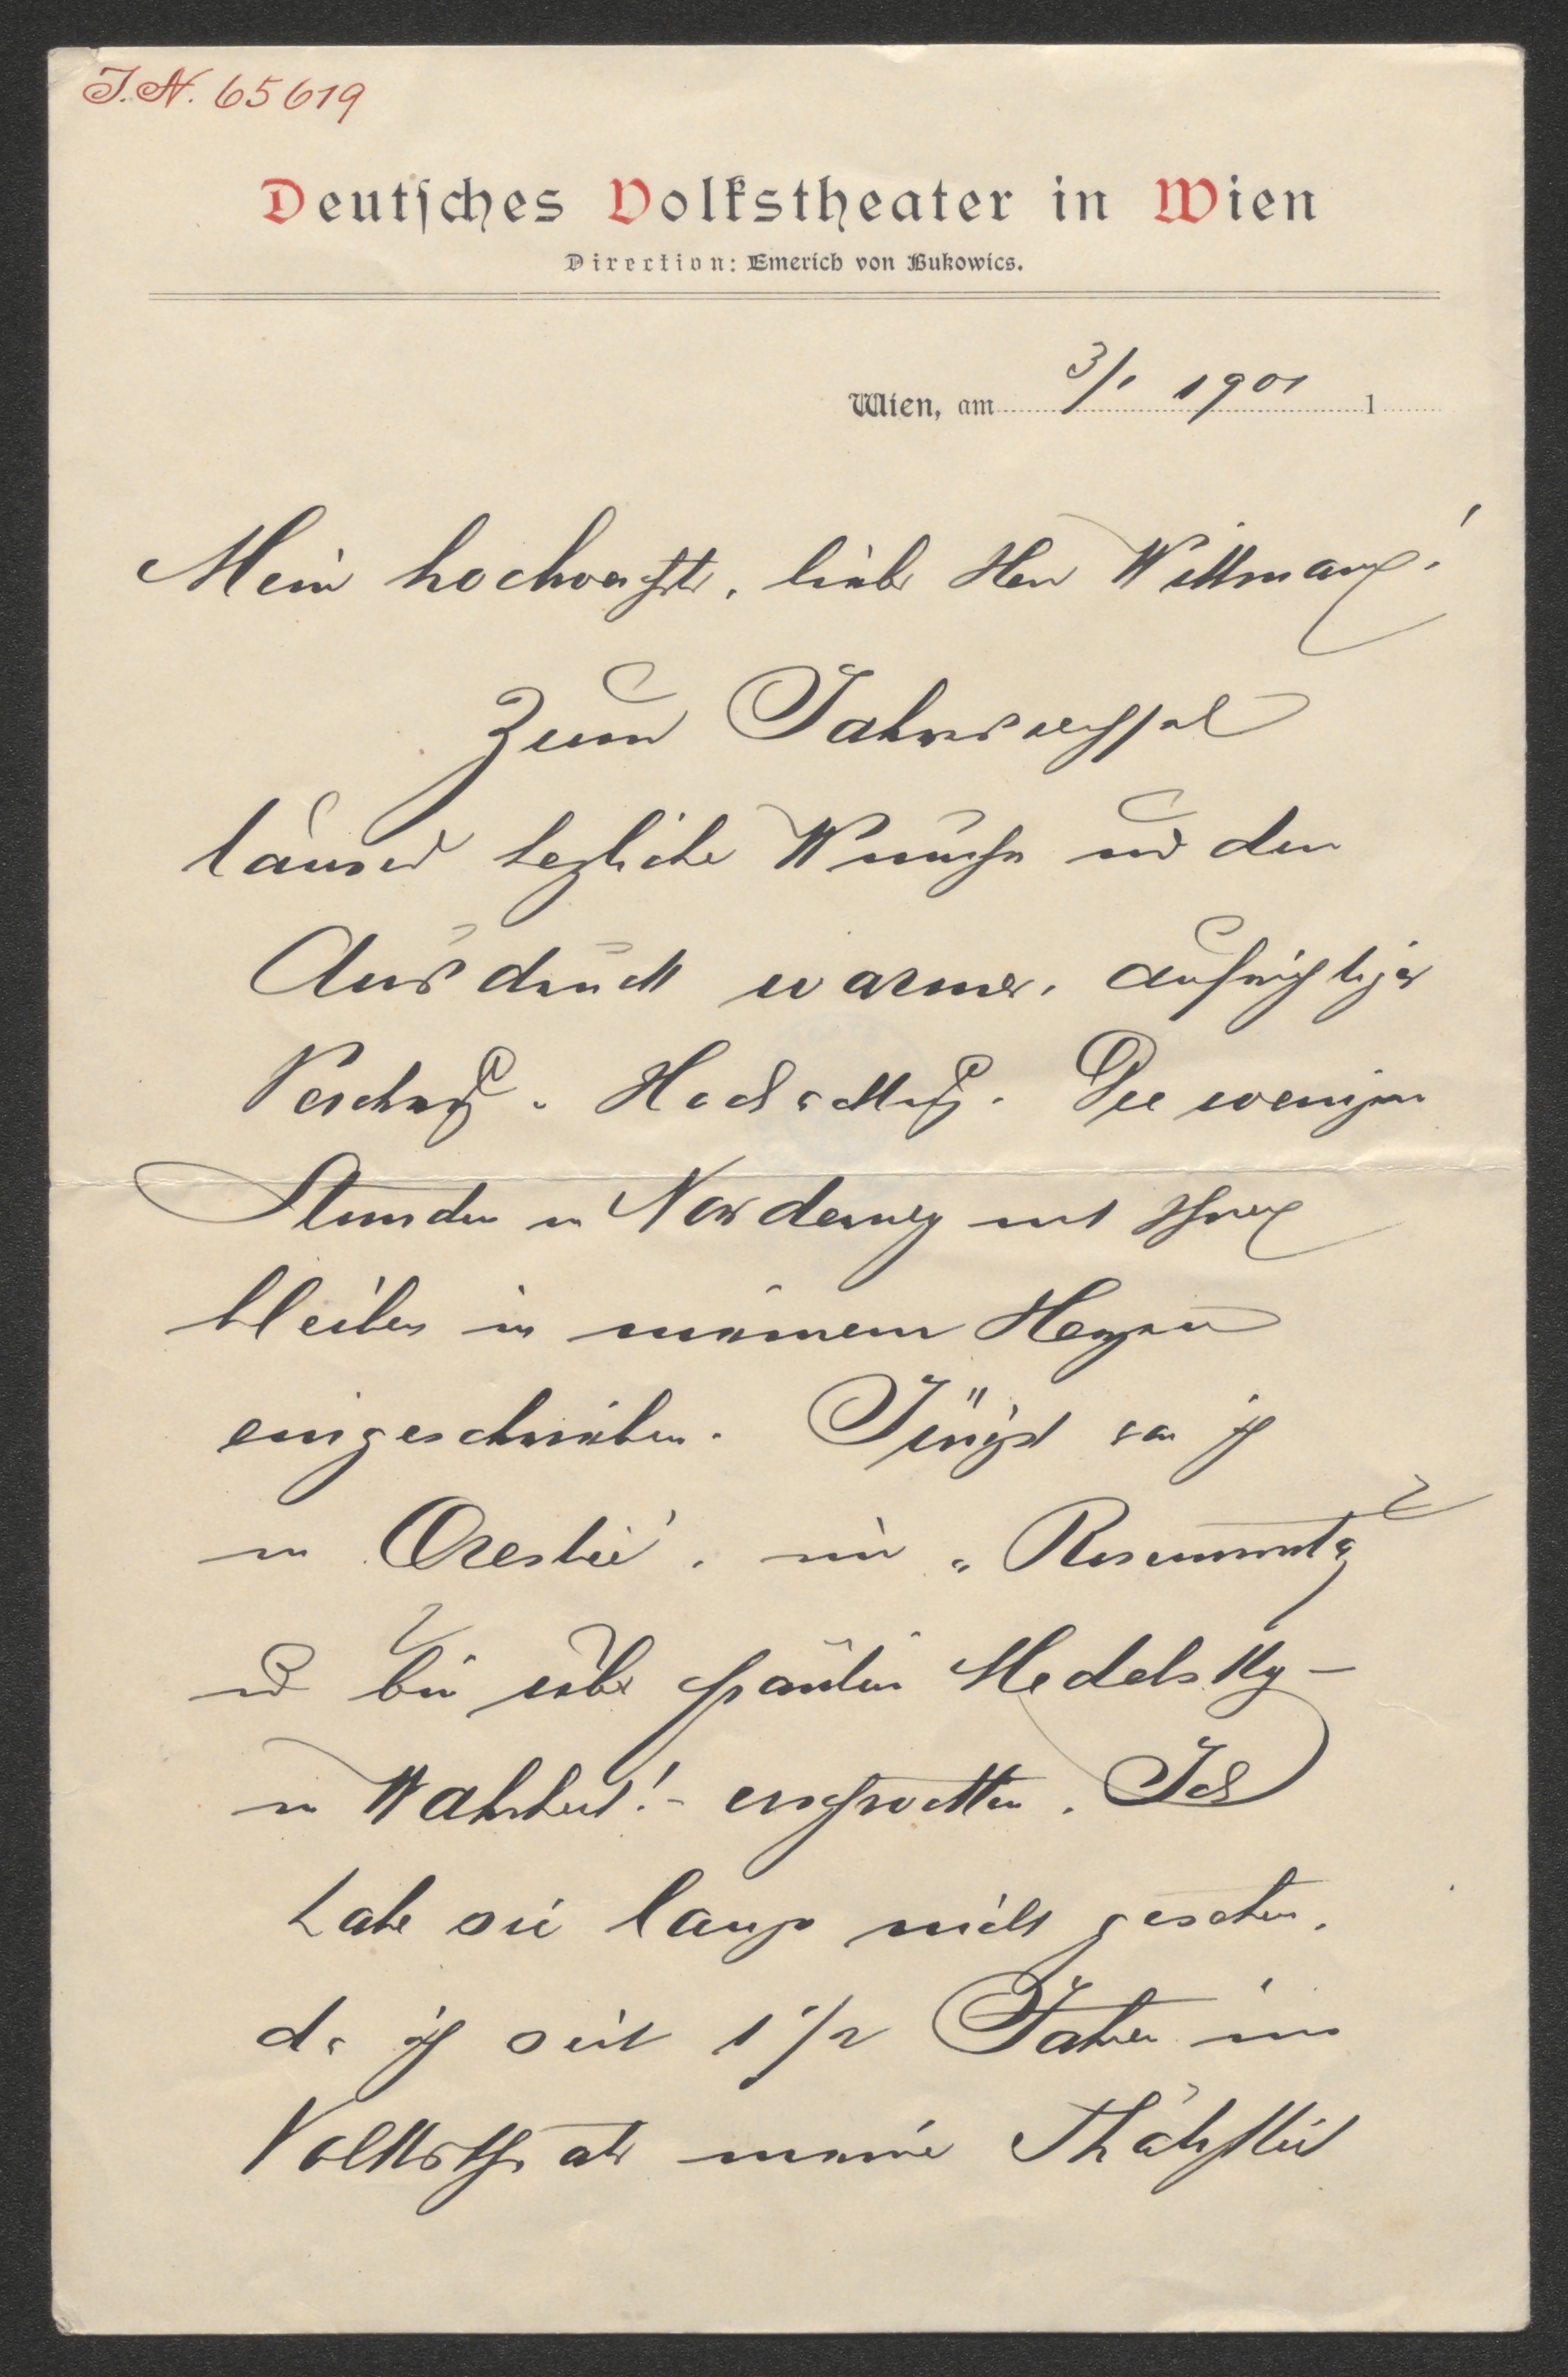 I.N. 65619
Deutsches Volkstheater in Wien
Direction: Emerich von Bukowics.
Wien, am 3/1 1901 1
Mein hochverehrter, lieber Herr Wittmann!
Zum Jahreswechsel
tausend herzliche Wünsche und den
Ausdruck warmer, aufrichtiger
Verehrung, Hochachtung. Die wenigen
Stunden in Norderney mit Ihnen
bleiben in meinem Herzen
eingeschrieben. Jüngst sah ich
in "Orestie", in "Rosenmontag"
und bin über Fräulein Medelsky –
in Wahrheit! – erschrocken. Ich
habe sie lange nicht gesehen,
da ich seit 1 1/2 Jahren im
Volkstheater meine Thätigkeit